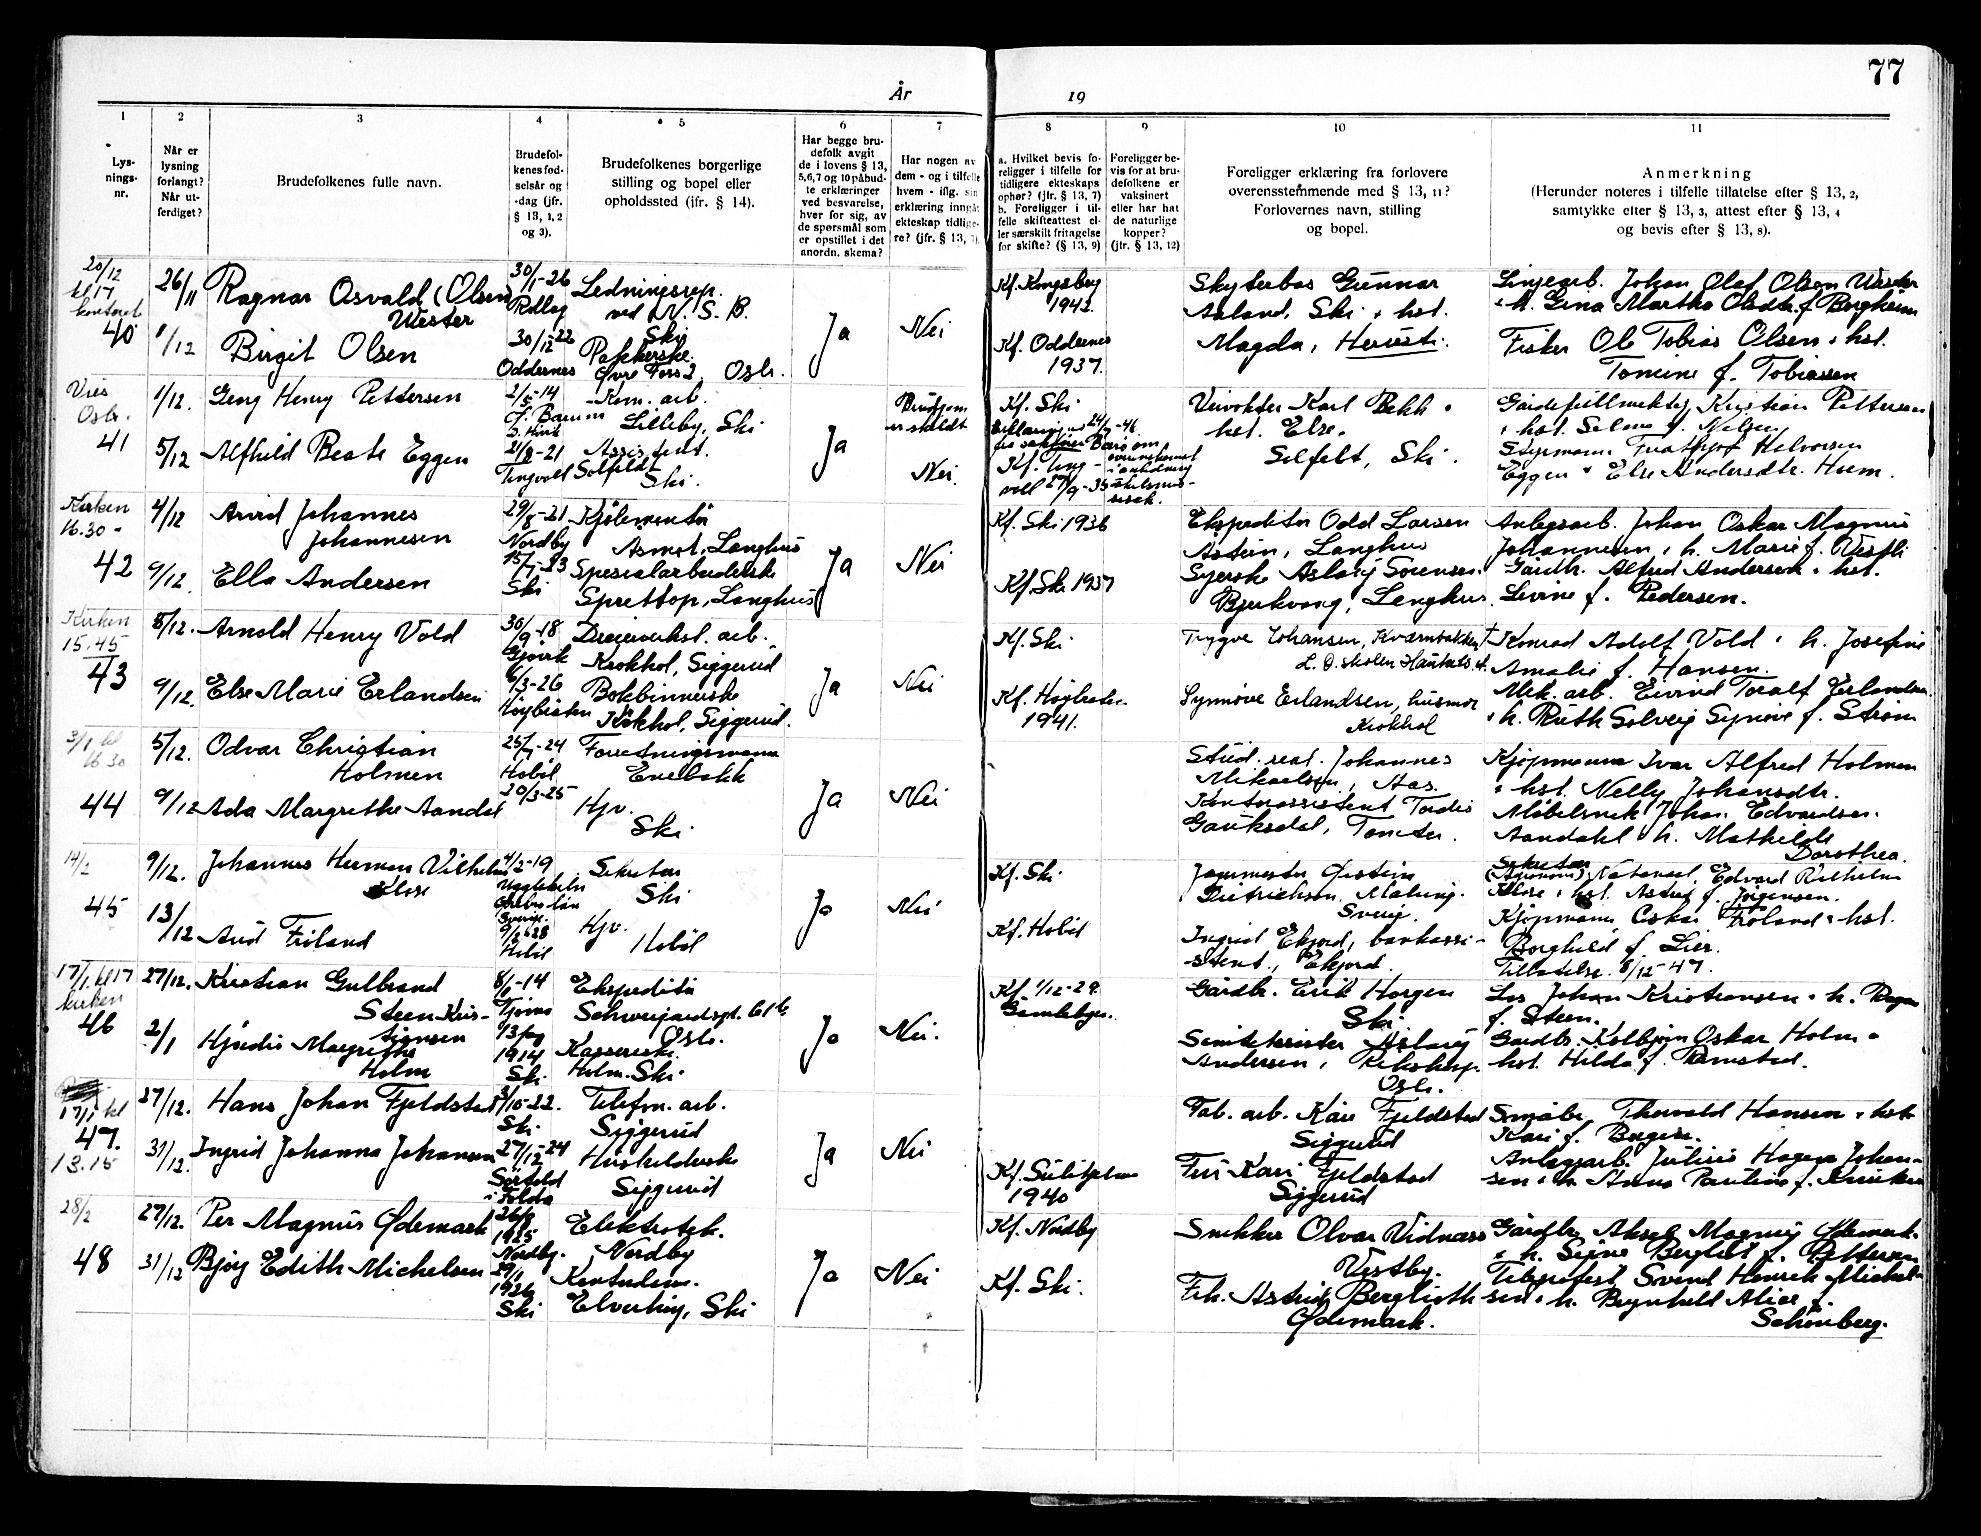 77
År 19
1
2
3
4
5
6
7
8
9
10
11
Lys-
nings-
nr.
Når er
lysning
forlangt?
Når ut-
ferdiget?
Brudefolkenes fulle navn.
Brudefol-
kenes fød-
selsår og
-dag (jfr.
§ 13, 1, 2
og 3).
Brudefolkenes borgerlige
stilling og bopel eller
opholdssted (jfr. § 14).
Har begge bru-
defolk avgit
de i lovens § 13,
5,6,7 og 10 påbud-
te erklæringer
ved besvarelse,
hver for sig, av
de spørsmål som
er opstillet i det
anordn. skema?
Har nogen av
dem - og i tilfelle
hvem - iflg. sin
erklæring inngåt
ekteskap tidlige-
re? (jfr. § 13, 7).
a. Hvilket bevis fo-
religger i tilfelle for
tidligere ekteskaps
ophør? (jfr. § 13, 7)
b. Foreligger i til-
felle skifteattest el-
ler særskilt fritagelse
for skifte? (§ 13, 9)
Foreligger be-
vis for at bru-
defolkene er
vaksinert
eller har hat
de naturlige
kopper?
(jfr. § 13, 12)
Foreligger erklæring fra forlovere
overensstemmende med § 13, 11?
Forlovernes navn, stilling
og bopel.
Anmerkning
(Herunder noteres i tilfelle tillatelse efter § 13, 2,
samtykke efter § 13, 3, attest efter § 13, 4
og bevis efter § 13, 8).
20/12
kl 17
kontoret
40
26/11
1/12
Ragnar Osvald (Olsen)
Wester
Birgit Olsen
30/1-26
30/12-22
Oddernes
Ledningsrep.
ved N.S.B.
Ski
Pakkerske.
Øvre Foss 2, Oslo.
Ja
Nei
Kf. Kongsberg
1942.
Kf. Oddernes
1937.
Skyterbas Gunnar
Aaland, Ski + hst.
Magda,
Linjearb. Johan Olaf Olsen Wester
+ h. Gina Martha Olsdtr. f. Borgheim
Fisker Ole Tobias Olsen + hst.
Tomine f. Tobiassen
Vies
Oslo.
41
1/12.
5/12
Georg Henry Pettersen
Alfhild Beate Eggen
2/5-14
21/8-21
Tingvoll
Kom. arb.
Lilleby, Ski
Assistent.
Solfeldt
Ski.
Ja
Brudgom
er skildt
Nei.
Kf. Ski
Kf. Ting-
voll 27/9-35
Veivokter Karl Bekk +
hst. Else.
Solfelt, Ski.
Gårdsfullmektig Kristian Pettersen
+ hst. Selma f. Nilsen
Styrmann Fridtjof Halvorsen
Eggen + Else Andersdtr. Hum.
Kirken
16.30-
42
4/12
9/12.
Arvid Johannes
Johannesen
Ella Andersen
29/8-21
Nordby
15/7-23
Ski
Kjølemontør
Asmot, Langhus
Spesialarbeiderske
Sprettop, Langhus
Ja
Nei
Kf. Ski 1936
Kf. Ski 1937
Ekspeditør Odd Larsen
Åstein, Langhus
Syerske Aslaug Sorensen.
Bjerkvang, Langhus.
Anlegsarb. Johan Oskar Magnus
Johannesen + h. Marie f. Vestli
Gårdbr. Alfred Andersen + hst.
Levine f. Pedersen.
Kirken
15.45
43
8/12.
9/12.
Arnold Henry Vold
Else Marie Erlandsen
30/9-18
Gjøvik
6/3-26
Dreieverkst. arb.
Krokhol, Siggerud
Bokbinnerske
Krokhol, Siggerud.
Ja
Nei
Kf. Ski
1941.
Trygve Johansen,
Synnøve Erlandsen, husmor
Krokhol
+ Konrad Adolf Vold + h. Josefine
Amalie f. Hansen.
Mek. arb. Eivind Toralf Erlandsen
+ h. Ruth Solveig Synøve f. Strøm
3/1 kl
16 30
44
5/12.
9/12
Odvar Christian
Holmen
Ada Margrethe Aandal
25/7-24
Hobøl
20/3-25
Forretningsmann
Enebakk
Hjv.
Ski
Ja
Nei
Stud. real. Johannes
Mikaelsen, Aas.
Kontorassistent Tordis
Gauksdal, Tomter.
Kjøpmann Ivar Alfred Holmen
+ hst. Nelly Johansdtr.
Møbelsnek. Johan Edvardsen
Aandahl + h. Mathilde
Dorothea.
14/2
45
9/12.
13/12
Johannes Herman Vilhelm
Klose
Aud Frøland
4/2-19
Sverige.
9/2-28
Hobøl
Sekretær
Ski
Hjv.
Hobøl
Ja
Nei
Kf. Ski
Kf. Hobøl
Jegermester Øistein
Dietrichson, Malung.
Sverig.
Ingrid Ekjord, bankassi-
stent, Ekjord.
Sekretær
(Agronom) Natanael Edvard Vilhelm
Klose + hst. Astrid f. Jørgensen.
Kjøpmann Oskar Frøland + hst.
Borghild f. Lier.
Tillatelse. 8/12-47.
17/1. kl 17
kirken
46
27/12.
2/1
Kristian Gulbrand
Steen-Kris-
tiansen
Hjørdis Margrethe
Holm
8/1-14
Tjøme
1914
Ski.
Ekspeditør
Schweigaardsgt. 61 b
Oslo.
Kassererske
Holm. Ski.
Ja
Nei.
Kf. 1/12-29
Gamlebyen.
Gårdbr. Erik Horgen
Ski.
Aslaug
Andersen, Rikshosp.
Oslo.
Los Johan Kristiansen + h. Ragna
f. Steen.
Gårdbr. Kolbjørn Oskar Holm +
hst. Hilda f. Ramstad.
17/1 kl
47.
13.15
27/12.
31/12.
Hans Johan Fjeldstad
Ingrid Johanna Johansen
/10-22.
Ski
27/12-24
Sørfold
i Folda
Telefon. arb.
Siggerud
Husholderske
Siggerud
Ja
Nei
Kf. Sulitjelma
1940
Fab. arb. Kåre Fjeldstad
Siggerud
Fru Kari Fjeldstad
Siggerud
Småbr. Thorvald Hansen + hst.
Kari f. Bergem.
Anlegsarb. Julius Hagen Johan-
sen + h. Anna Pauline f.
28/2
48
27/12.
31/12
Per Magnus Ødemark
Bjørg Edith Michelsen
1925
Nordby.
29/1
1926
Ski
Elektrotek.
Nordby
Kontordame.
Elverhøy, Ski
Ja
Nei
Kf. Nordby
Kf. Ski.
Snekker Olvar Vidnæss
Vestby.
Frk. Astrid Bergljoth
Ødemark.
Gårdbr. Aksel Magnus Ødemark
+ h. Signe Bergliot f. Pettersen
Telegrafest. Svend Henrik Michel-
sen + h. Brynhild Alice f.
Schønberg.